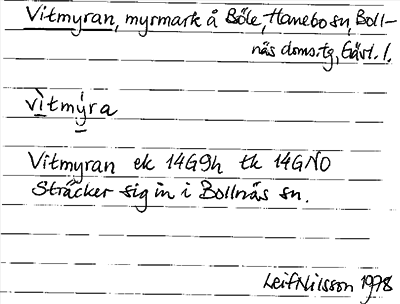 Vitmyran, myrmark å Böle, Hanebo sn, Boll-
näs doms.tg, Gävl. l.
vìtmýra
Vitmyran ek 14G9h tk 14GNO
Sträcker sig in i Bollnäs sn.
Leif Nilsson 1978